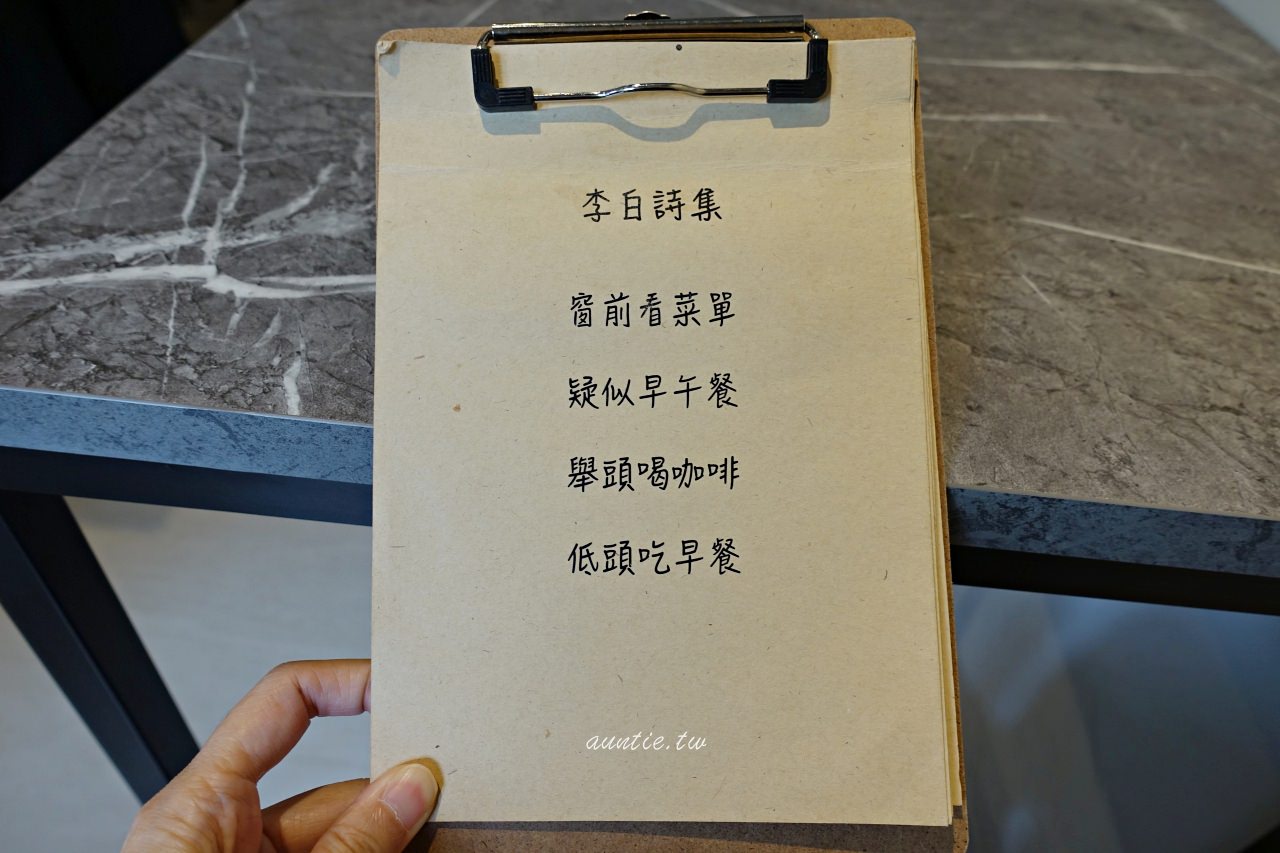 李白詩集
窗前看菜單
疑似早午餐
舉頭喝咖啡
低頭吃早餐
auntie.tw